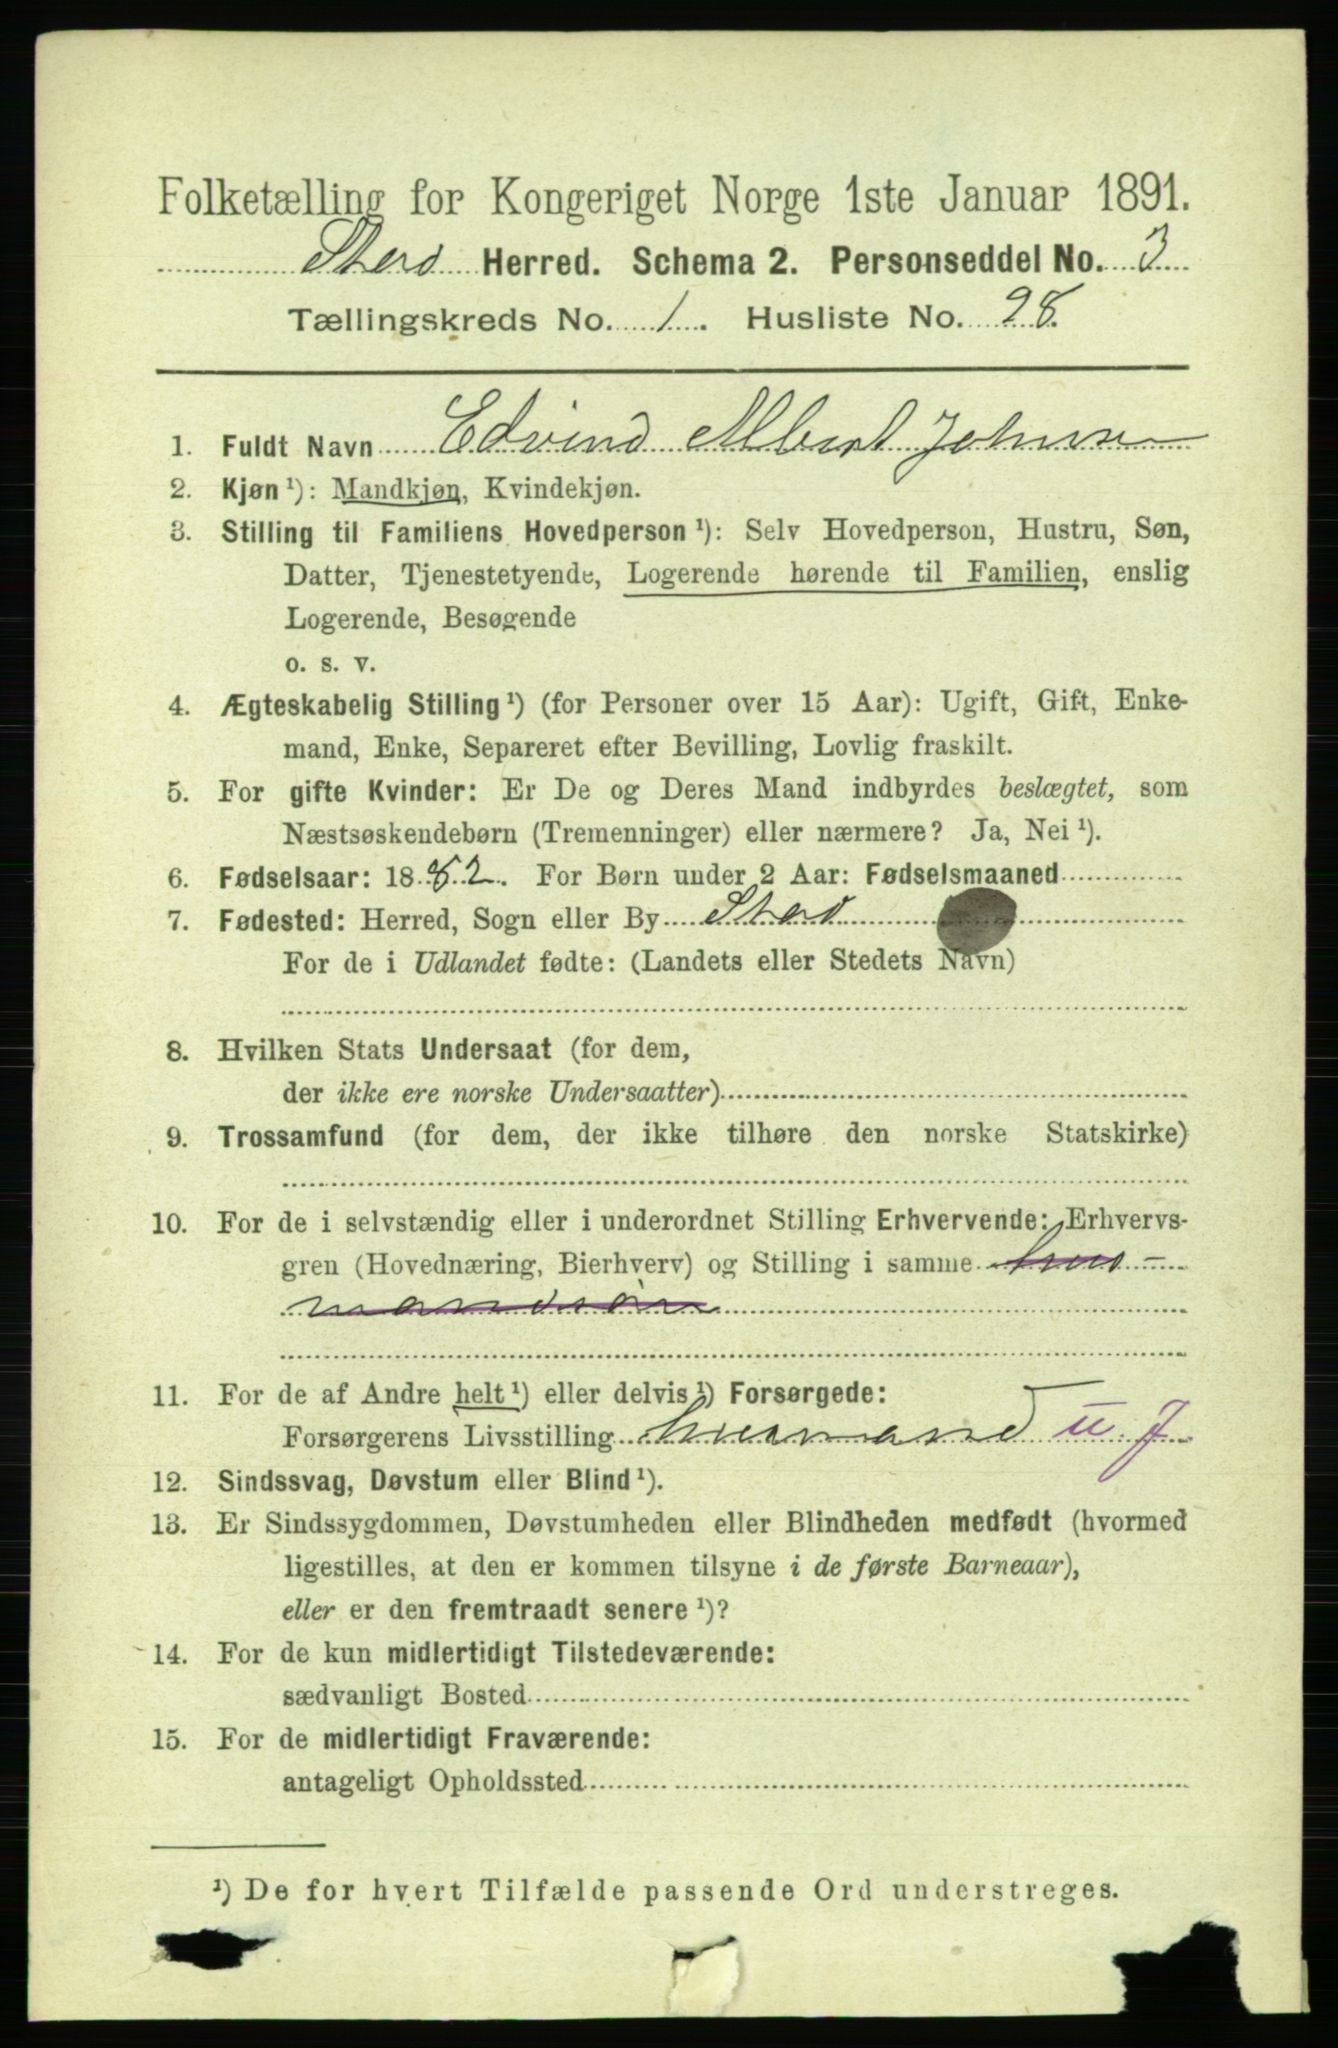 Folketælling for Kongeriget Norge 1ste Januar 1891.
Herred. Schema 2. Personseddel No. 3
Tællingskreds No. 1. Husliste No. 28.
1. Fuldt Navn Edvind Albert Johnsen
2. Kjøn ¹): Mandkjøn, Kvindekjøn.
3. Stilling til Familiens Hovedperson ¹): Selv Hovedperson, Hustru, Søn,
Datter, Tjenestetyende, Logerende hørende til Familien, enslig
Logerende, Besøgende
o. s. v.
4. Ægteskabelig Stilling ¹) (for Personer over 15 Aar): Ugift, Gift, Enke-
mand, Enke, Separeret efter Bevilling, Lovlig fraskilt.
5. For gifte Kvinder: Er De og Deres Mand indbyrdes beslægtet, som
Næstsøskendebørn (Tremenninger) eller nærmere? Ja, Nei ¹).
6. Fødselsaar: 1882. For Børn under 2 Aar: Fødselsmaaned
7. Fødested: Herred, Sogn eller By
For de i Udlandet fødte: (Landets eller Stedets Navn)
8. Hvilken Stats Undersaat (for dem,
der ikke ere norske Undersaatter)
9. Trossamfund (for dem, der ikke tilhøre den norske Statskirke)
10. For de i selvstændig eller i underordnet Stilling Erhvervende: Erhvervs-
gren (Hovednæring, Bierhverv) og Stilling i samme hus-
mandsøn
11. For de af Andre helt ¹) eller delvis ¹) Forsørgede:
Forsørgerens Livsstilling husmand u. J
12. Sindssvag, Døvstum eller Blind ¹).
13. Er Sindssygdommen, Døvstumheden eller Blindheden medfødt (hvormed
ligestilles, at den er kommen tilsyne i de første Barneaar),
eller er den fremtraadt senere ¹)?
14. For de kun midlertidigt Tilstedeværende:
sædvanligt Bosted
15. For de midlertidigt Fraværende:
antageligt Opholdssted
¹) De for hvert Tilfælde passende Ord understreges.